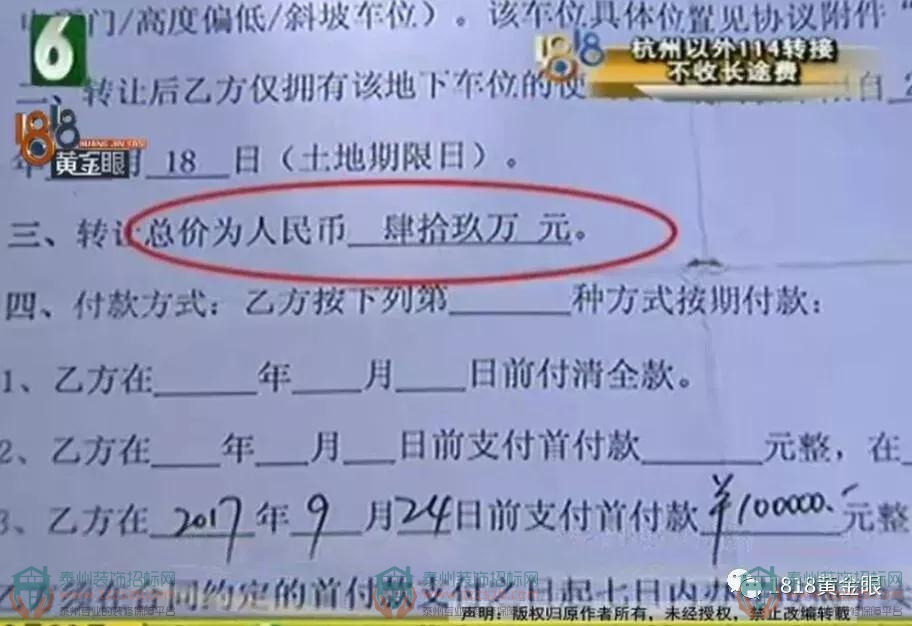 门/高度偏低/斜坡车位）。该车位具体位置见协议附件“
6
1818
杭州以外114转接
不收长途费
二、转让后乙方仅拥有该地下车位的使
自
1818
HUANG JIN YAN
黄金眼
月 18 日（土地期限日）。
三、转让总价为人民币 肆拾玖万 元。
四、付款方式：乙方按下列第______种方式按期付款：
1、乙方在_____年____月____日前付清全款。
2、乙方在____年___月___日前支付首付款______元整，在
3、乙方在 2017 年 9 月 24 日前支付首付款 ¥100000.- 元整
同约定的首付款支付
日起七日内办
泰州装饰招标网
泰州装饰招标网
泰州装饰招标网
泰州装饰招标网
泰州装饰招标网
1818黄金眼
声明：版权归原作者所有，未经授权，禁止改编转载